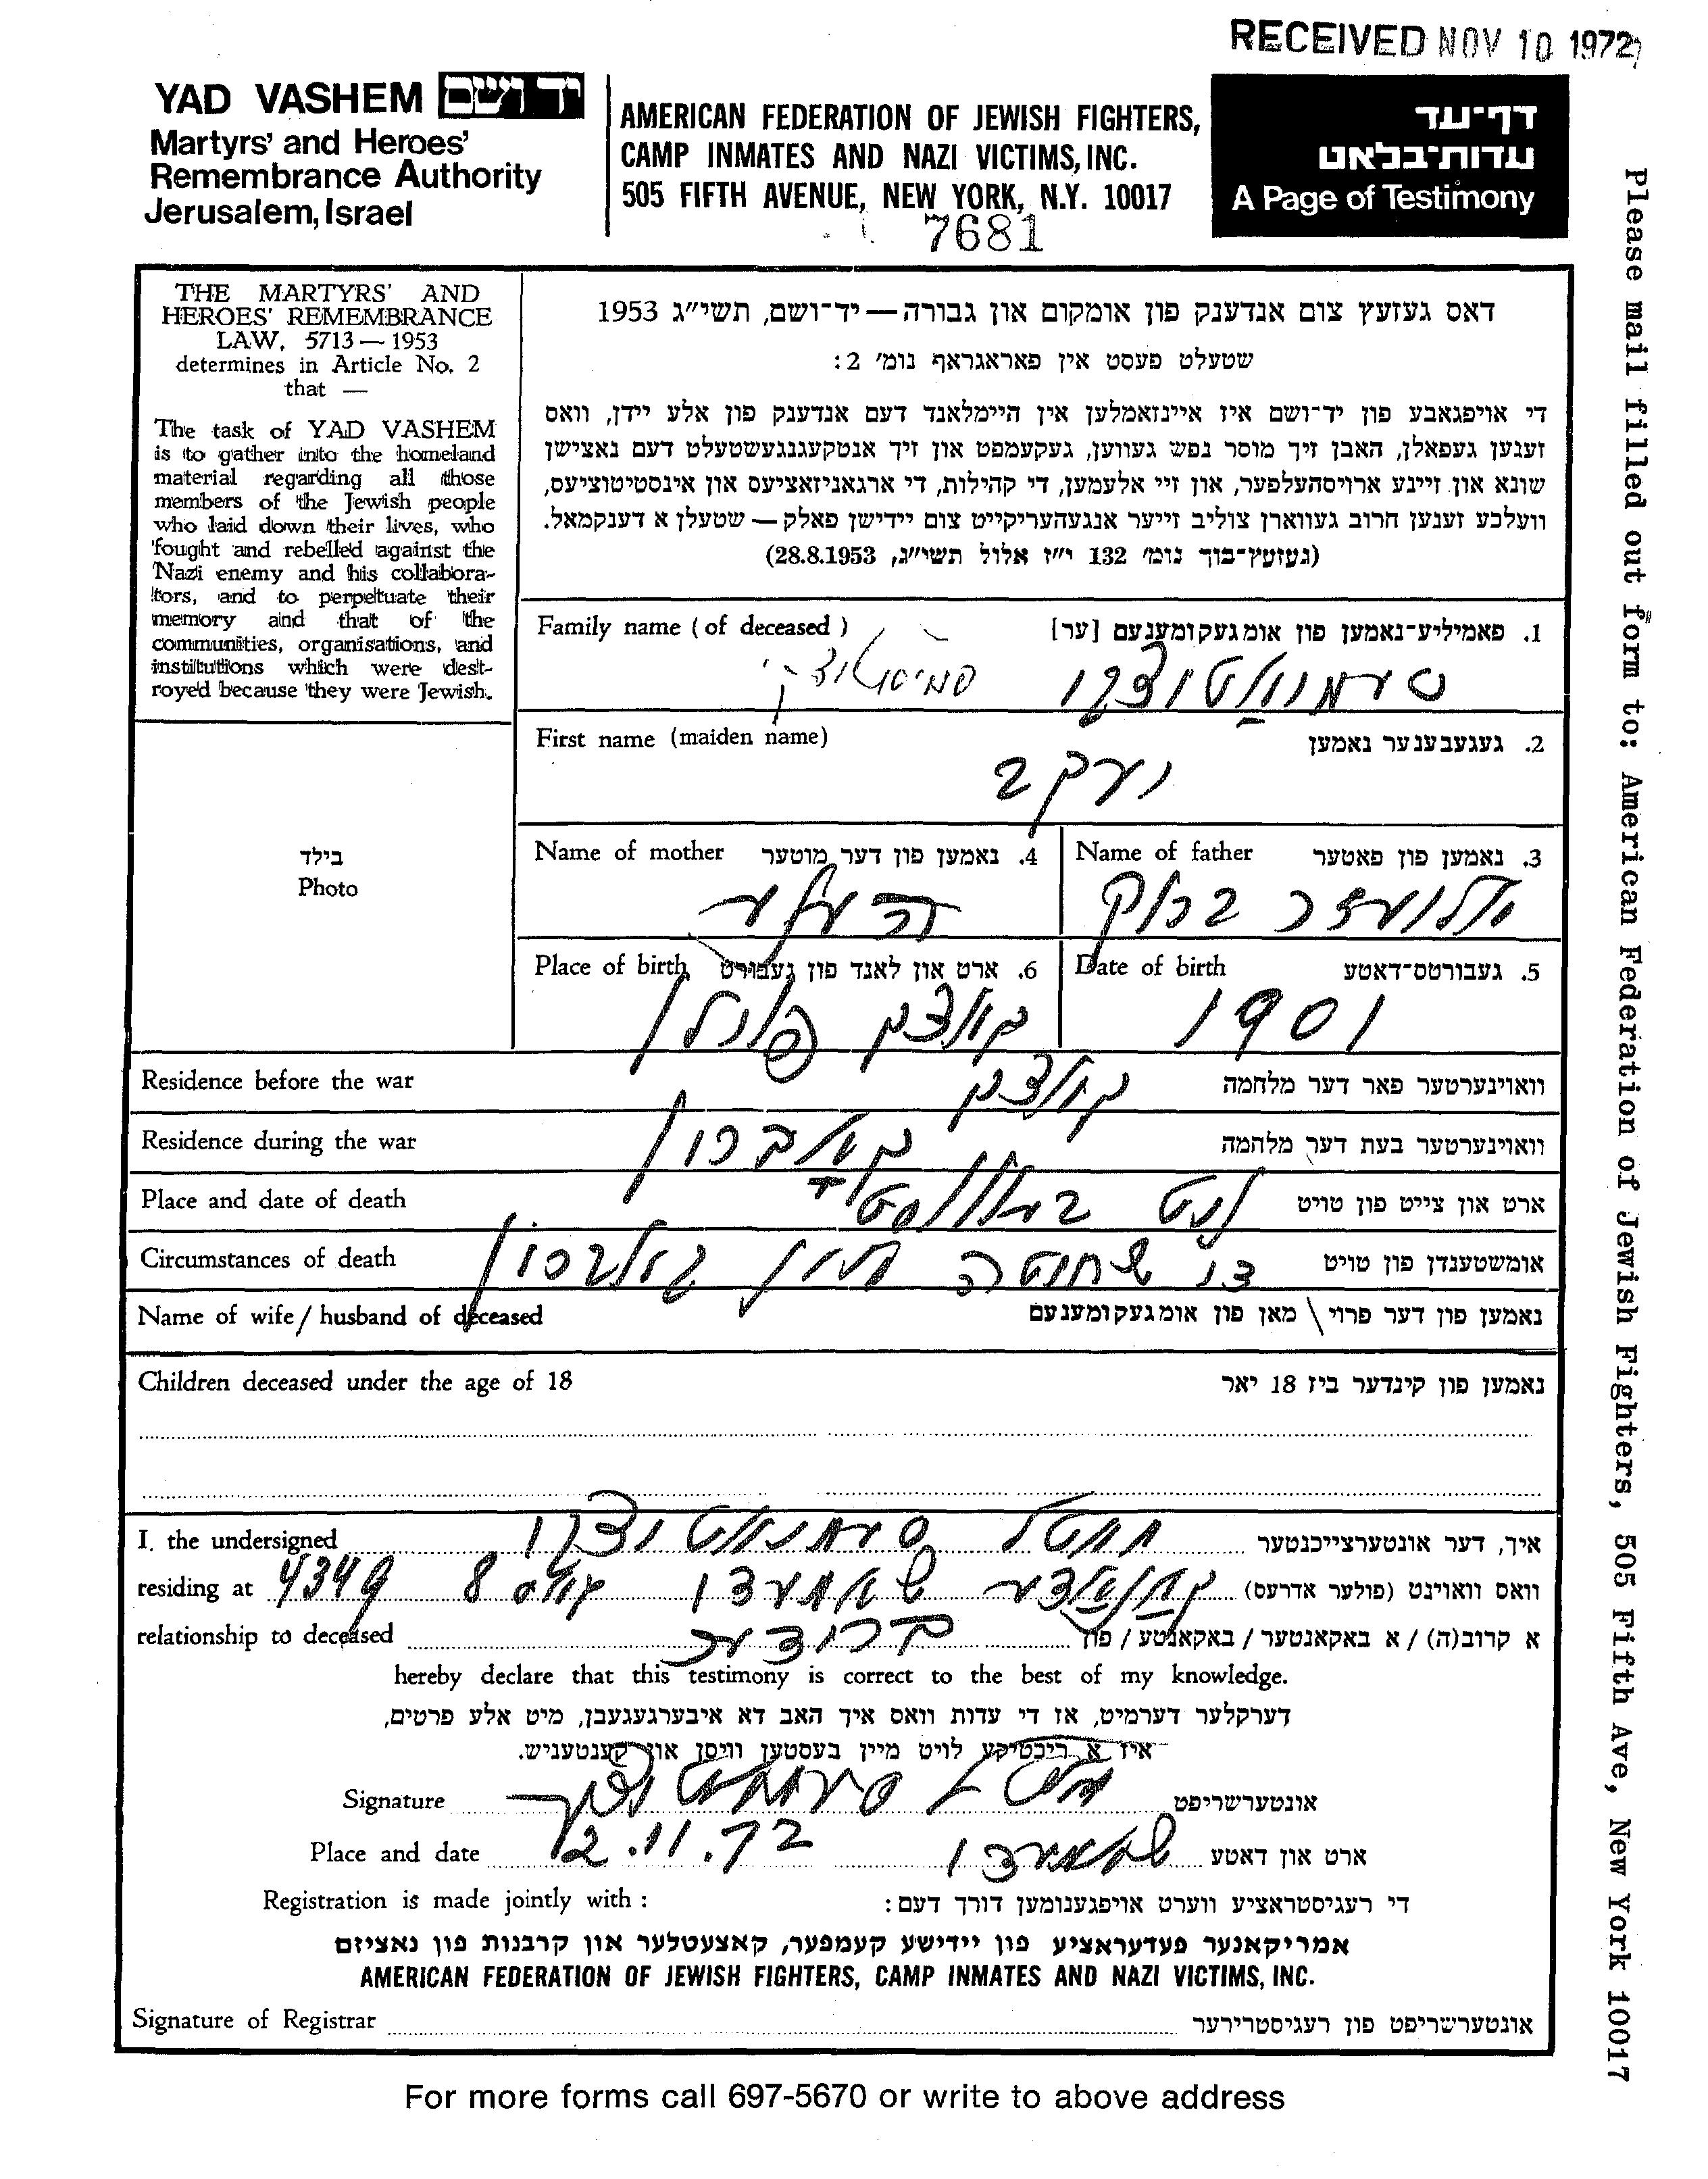 RECEIVED NOV 10 1972
YAD VASHEM יד ושם
Martyrs' and Heroes'
Remembrance Authority
Jerusalem, Israel
AMERICAN FEDERATION OF JEWISH FIGHTERS,
CAMP INMATES AND NAZI VICTIMS, INC.
505 FIFTH AVENUE, NEW YORK, N.Y. 10017
7681
דף־עד
עדות־בלאט
A Page of Testimony
Please mail filled out form to: American Federation of Jewish Fighters, 505 Fifth Ave, New York 10017
THE MARTYRS' AND
HEROES' REMEMBRANCE
LAW, 5713 — 1953
determines in Article No. 2
that —
The task of YAD VASHEM
is to gather into the homeland
material regarding all those
members of the Jewish people
who laid down their lives, who
fought and rebelled against the
Nazi enemy and his collabora-
tors, and to perpetuate their
memory and that of the
communities, organisations, and
institutions which were dest-
royed because they were Jewish.
דאס געזעץ צום אנדענק פון אומקום און גבורה — יד־ושם, תשי״ג 1953
שטעלט פעסט אין פאראגראף נומ׳ 2:
די אויפגאבע פון יד־ושם איז איינזאמלען אין היימלאנד דעם אנדענק פון אלע יידן, וואס
זענען געפאלן, האבן זיך מוסר נפש געווען, געקעמפט און זיך אנטקעגנגעשטעלט דעם נאצישן
שונא און זיינע ארויסהעלפער, און זיי אלעמען, די קהילות, די ארגאניזאציעס און אינסטיטוציעס,
וועלכע זענען חרוב געווארן צוליב זייער אנגעהעריקייט צום יידישן פאלק — שטעלן א דענקמאל.
(געזעץ־בוך נומ׳ 132 י״ז אלול תשי״ג, 28.8.1953)
Family name (of deceased) 1. פאמיליע־נאמען פון אומגעקומענעם [ער]
First name (maiden name) 2. געגעבענער נאמען
יעקב
בילד
Photo
Name of mother 4. נאמען פון דער מוטער
Name of father 3. נאמען פון פאטער
Place of birth 6. ארט און לאנד פון געבורט
קאלצק פוילן
Date of birth 5. געבורטס־דאטע
1901
Residence before the war וואוינערטער פאר דער מלחמה
קאלצק
Residence during the war וואוינערטער בעת דער מלחמה
Place and date of death ארט און צייט פון טויט
Circumstances of death אומשטענדן פון טויט
Name of wife / husband of deceased נאמען פון דער פרוי \ מאן פון אומגעקומענעם
Children deceased under the age of 18 נאמען פון קינדער ביז 18 יאר
I, the undersigned איך, דער אונטערצייכנטער
residing at 4349 8 וואס וואוינט (פולער אדרעס)
relationship to deceased ברודער א קרוב(ה) / א באקאנטער / באקאנטע / פון
hereby declare that this testimony is correct to the best of my knowledge.
דערקלער דערמיט, אז די עדות וואס איך האב דא איבערגעגעבן, מיט אלע פרטים,
איז א ריכטיקע לויט מיין בעסטען וויסן און קענטעניש.
Signature אונטערשריפט
Place and date 2.11.72 ארט און דאטע
Registration is made jointly with: די רעגיסטראציע ווערט אויפגענומען דורך דעם:
אמריקאנער פעדעראציע פון יידישע קעמפער, קאצעטלער און קרבנות פון נאציזם
AMERICAN FEDERATION OF JEWISH FIGHTERS, CAMP INMATES AND NAZI VICTIMS, INC.
Signature of Registrar אונטערשריפט פון רעגיסטרירער
For more forms call 697-5670 or write to above address